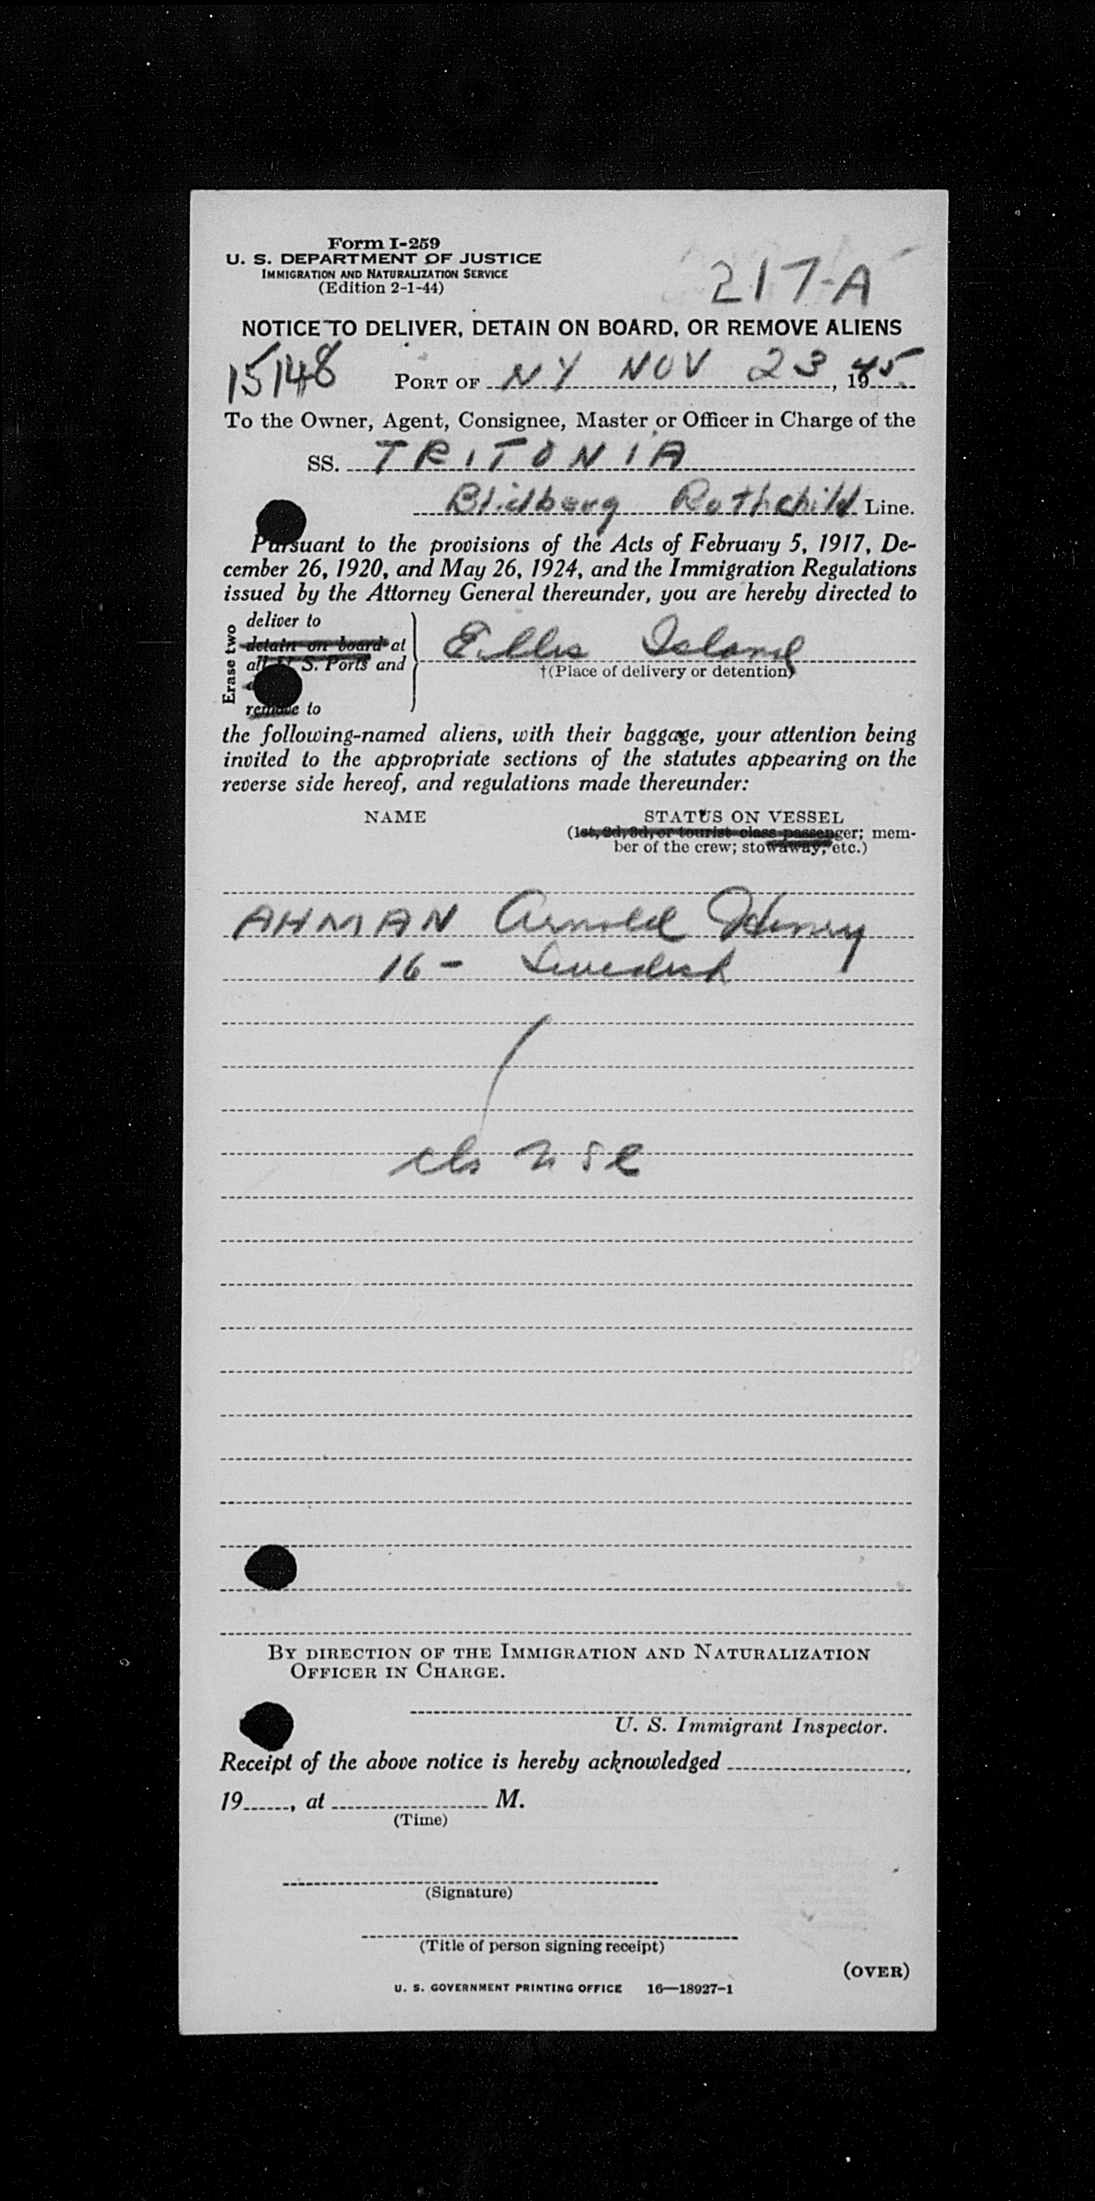 Form I-259
U. S. DEPARTMENT OF JUSTICE
IMMIGRATION AND NATURALIZATION SERVICE
(Edition 2-1-44)
217-A
NOTICE TO DELIVER, DETAIN ON BOARD, OR REMOVE ALIENS
15148
PORT OF NY NOV 23, 1945
To the Owner, Agent, Consignee, Master or Officer in Charge of the
SS. TRITONIA
Blidberg Rothchild Line.
Pursuant to the provisions of the Acts of February 5, 1917, De-
cember 26, 1920, and May 26, 1924, and the Immigration Regulations
issued by the Attorney General thereunder, you are hereby directed to
Erase two
deliver to
detain on board at
all U. S. Ports and
remove to
Ellis Island
†(Place of delivery or detention)
the following-named aliens, with their baggage, your attention being
invited to the appropriate sections of the statutes appearing on the
reverse side hereof, and regulations made thereunder:
NAME STATUS ON VESSEL
(1st, 2d, 3d, or tourist class passenger; mem-
ber of the crew; stowaway, etc.)
AHMAN Arnold Henry
16 - Swedish
BY DIRECTION OF THE IMMIGRATION AND NATURALIZATION
OFFICER IN CHARGE.
U. S. Immigrant Inspector.
Receipt of the above notice is hereby acknowledged
19, at M.
(Time)
(Signature)
(Title of person signing receipt)
(OVER)
U. S. GOVERNMENT PRINTING OFFICE 16—18927-1